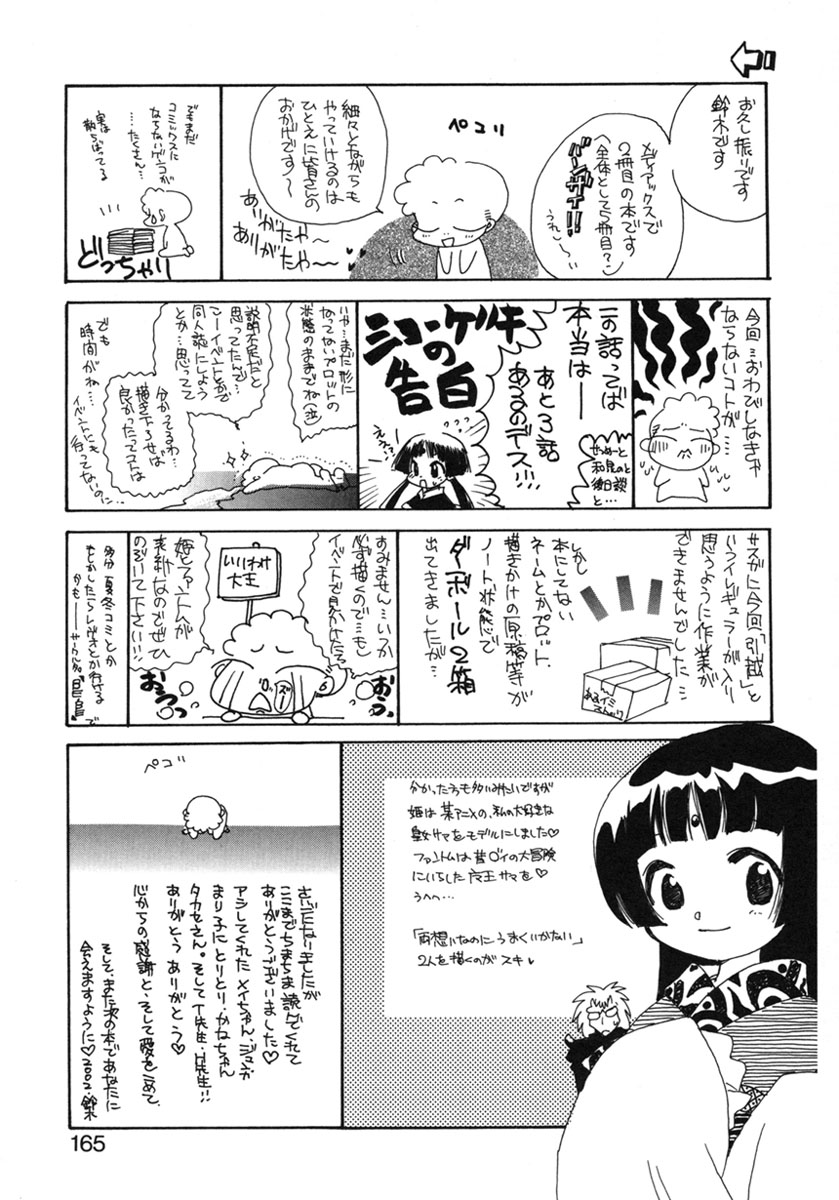 お久し振りです
鈴木です
メディアックスで
2冊目の本です
(全体として5冊目?)
バンザイ!!
うれし〜
ペコリ
細々とながらも
やっていけるのは
ひとえに皆さんの
おかげです〜
ありがたや〜
ありがたや〜
でもまだ
コミックスに
ならないゲンコが
…たくさん…
実は
散らばってる
どっちゃり
今回…おわびしなきゃ
ならないコトが……
この話ってば
本当は──
あと3話
あるのデス…!!
せつめーと
和見のと
後日談
と…
の
告白
えぇっ
いや…まだ形に
なってないプロットの
状態のままでね(泣)
説明不足だと
思ってたんで…
こーイベントとかで
同人誌にしよう
とか…思ってて
分かってるわ…
描き下ろせば
良かったってコトは
でも
時間がね…
イベントにも
行ってないのに…
サスがに今回「引越し」と
いうイレギュラーが入り
思うように作業が
できませんでした…
しかし
本にしてない
ネームとかプロット、
描きかけの原稿等が
ノート状態で
ダンボール2箱
出てきましたが…
いいわけ
大王
すみません…いつか
必ず描くので…もし
イベントで見かけたら
姫とファントムが
表紙なのでぜひ
のぞいて下さい!!
おうっ
おうっ
ズー
多分 夏冬コミとか
もしかしたらレヴォとか行ける
かも──サークル
分かった方も多いみたいですが
姫は某アニメの、私の大好きな
皇女サマをモデルにしました♡
ファントムは昔ダイの大冒険
にいらした魔王サマを♡
うへへ…
「両想いなのにうまくいかない」
2人を描くのがスキ♥
ペコリ
さいごになりましたが
ここまでちまちま読んでくれて
ありがとうございました♡
アシしてくれた メイちゃん、ジュンヂ
まり子に とりとり・かなちゃん
タカセさん。そして T先生・H先生!!
ありがとう ありがとう♡
心からの感謝と、そして愛をこめて。
そして、また次の本であなたに
会えますように♡2002.鈴木
165